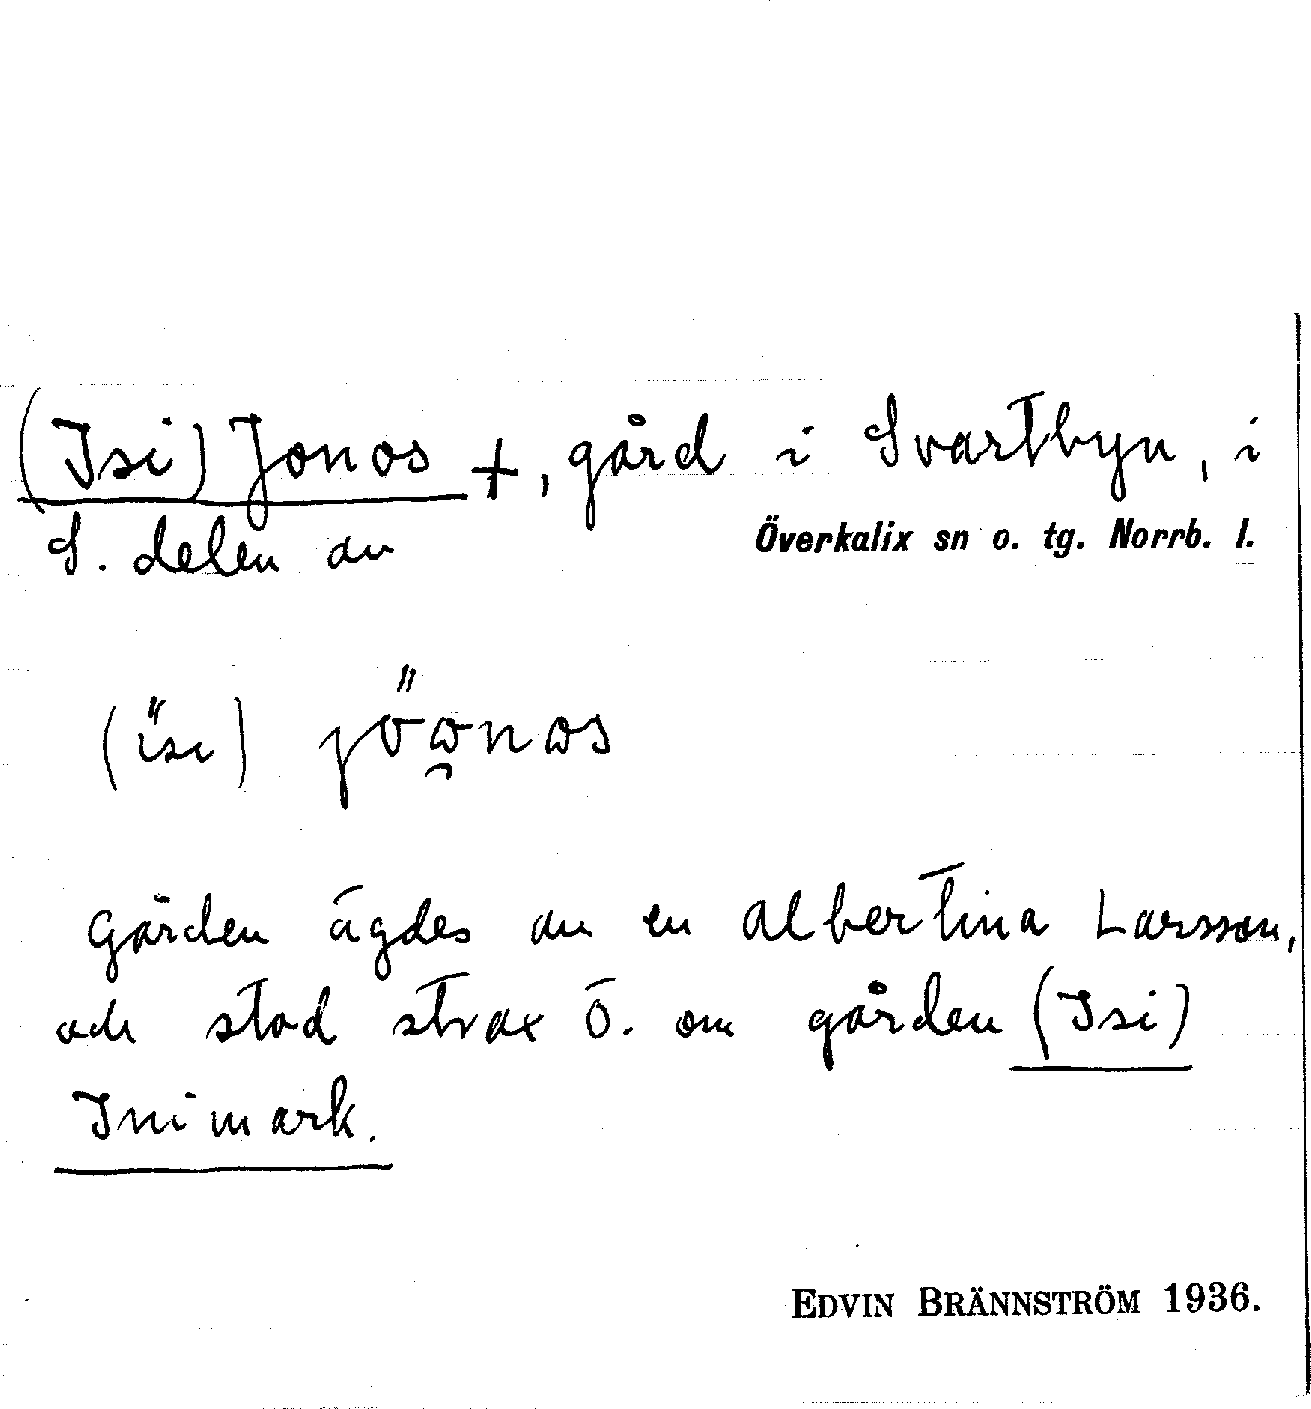 (Isi) Jonos +, gård i Svartbyn, i
S. delen av Överkalix sn o. tg. Norrb. l.
(isi)
Gården ägdes av en Albertina Larsson,
och stod strax ö. om gården (Isi)
Inimark.
EDVIN BRÄNNSTRÖM 1936.